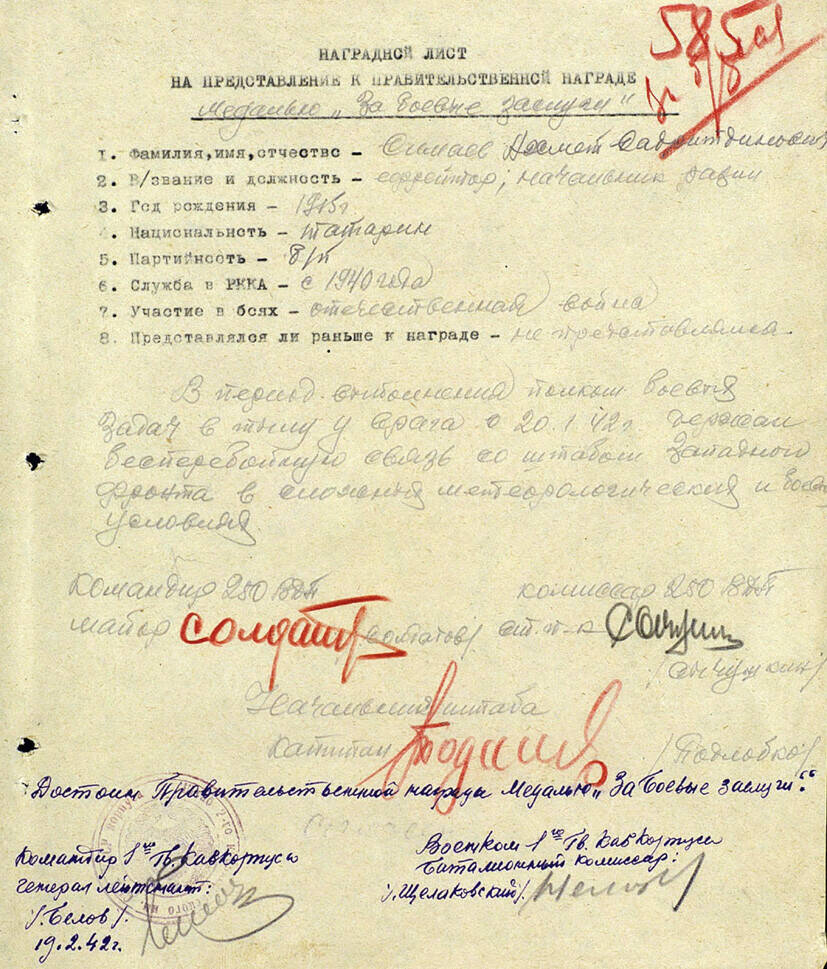 НАГРАДНОЙ ЛИСТ
НА ПРЕДСТАВЛЕНИЕ К ПРАВИТЕЛЬСТВЕННОЙ НАГРАДЕ
Медалью „За боевые заслуги"
1. Фамилия,имя,отчество -
2. В/звание и должность - ефрейтор, начальник рации
3. Год рождения - 1915г
4. Национальнсть - татарин
5. Партийность - б/п
6. Служба в РККА - с 1940 года
7. Участие в боях - отечественная война
8. Представлялся ли раньше к награде - не представлялся.
В период выполнения полком боевых
задач в тылу у врага с 20.1.42г. держал
бесперебойную связь со штабом Западного
фронта в сложных метеорологических и
условиях
Командир 250 ВДП
комиссар 250 ВДП
майор Солдатов /солдатов/
ст. п-к
Начальник штаба
капитан
Достоин Правительственной награды Медалью „За Боевые заслуги".
Командир 1го Гв. Кавкорпуса
генерал лейтенант:
/.Белов/.
19.2.42г.
Военком 1го Гв. Кавкорпуса
Баталионный комиссар:
/.Щелаковский/.